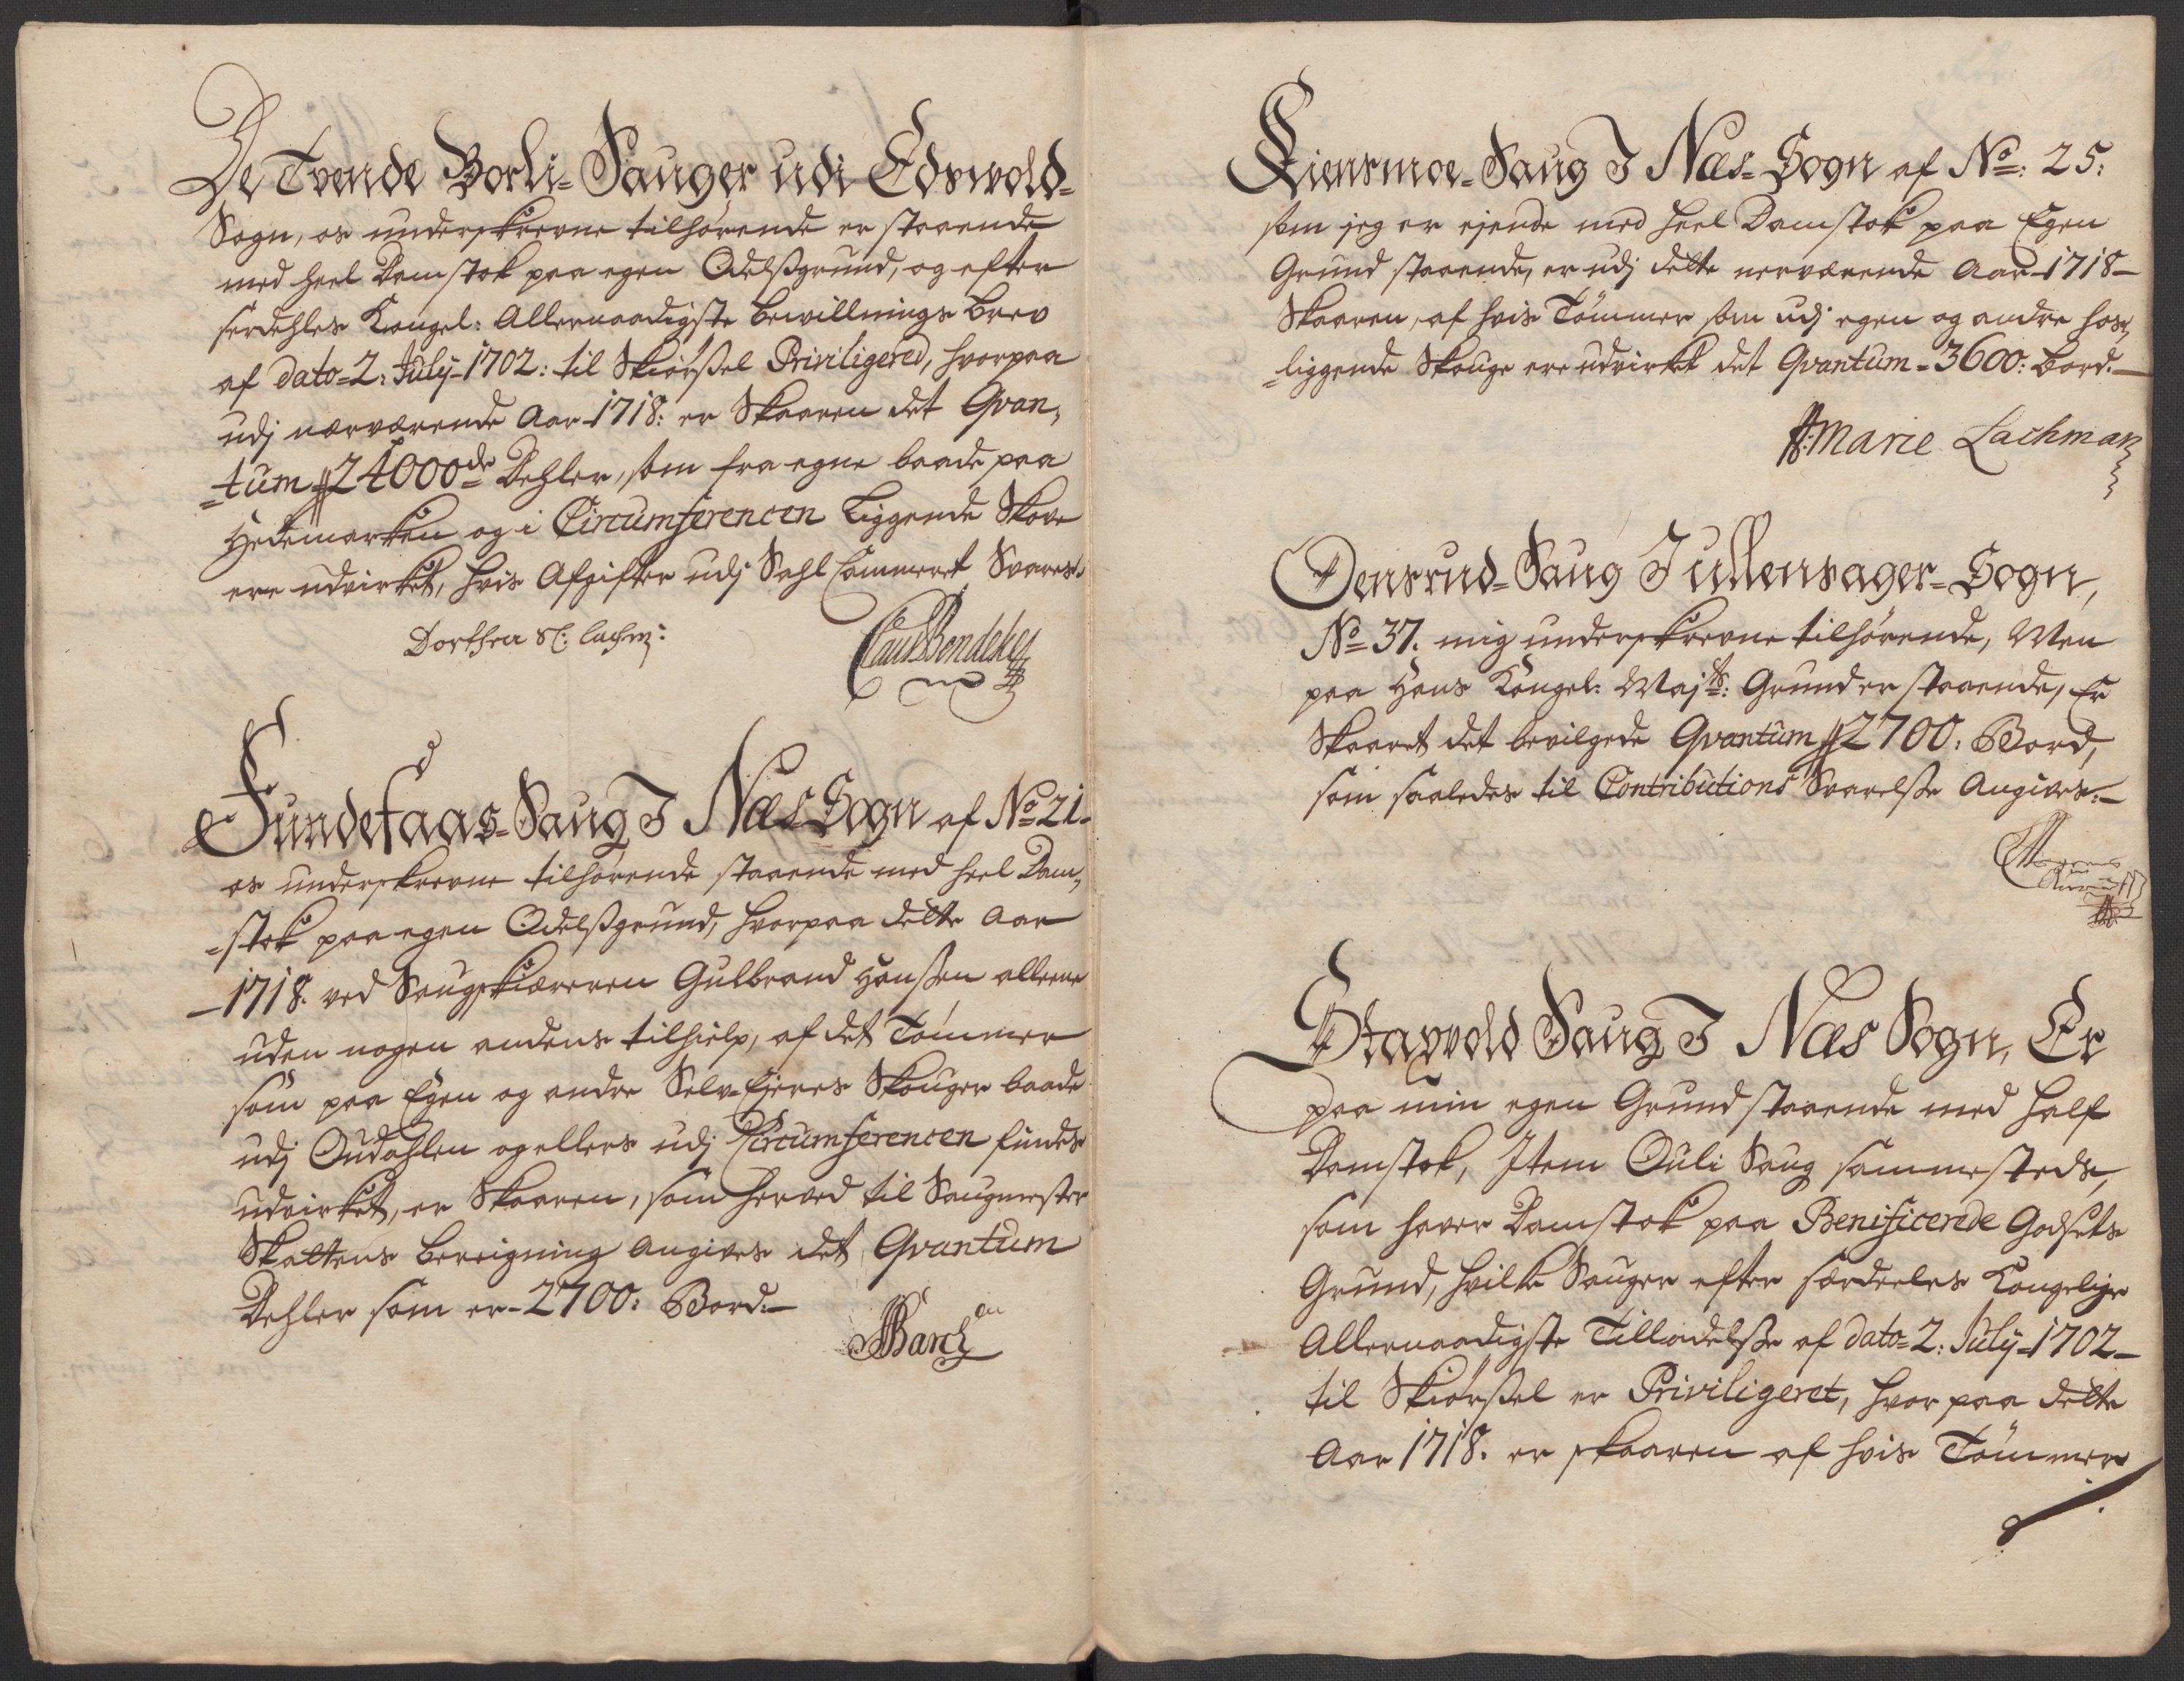 De Tvende Borli-Sauger udi Edswold-
Sogn, os underskrevne tilhørende er staaende
med heel Damstok paa egen Odelsgrund, og efter
serdehles Kongel: Allernaadigste bewillnings brev
af dato-2: July-1702: til Skiørsel Priviligered, hvorpaa
udj nærværende Aar-1718: er Skaaren det Qvan,
-tum 24000de Dehler, som fra egne baade paa
Hedemarken og i Circumferencen Liggende Skove
ere udvirket, hvis Afgifter udj Sahl Cammeret Svares.
Dorthea Sl: Lachm:
Paul Bendeke
Fundefaas-Saug I Næs Sogn af No 21-
os underskrevne tilhørende staaende med heel Dam,
-stok paa egen Odelsgrund, hvorpaa dette Aar
-1718. ved Saugskiæreren Gulbrand Hanssen alleene
uden nogen andens tilhielp, af det Tømmer
som paa Egen og andre Selv-Ejeres Skouger baade
udj Oudahlen og ellers udj Circumferencen findes
udvirket, er Skaaren, som herved til Saugmester
Skattens bereigning Angives det Qvantum
Dehler som er-2700: Bord.-
Barch
Kiensmoe-Saug I Næs-Sogn af No: 25:
som jeg er ejende med heel Damstok paa Egen
Grund staaende, er udj dette nerværende Aar-1718-
Skaaren, af hvis Tømmer som udj egen og andre hos,
-liggende Skouge ere udvirket det Qvantum-3600: bord.-
A: Marie Lachman
Densrud-Saug I Ullensager-Sogn,
No 37. mig underskrevne tilhørende, Men
paa Hans Kongel: Majts: Grund er staaende, Er
Skaaret det bevilgede Qvantum 2700: Bord,
som saaledes til Contributions Svarelse Angives.-
Stavold Saug I Næs Sogn, Er
paa min egen Grund staaende med half
Damstok, Item Ouli Saug sammesteds,
som haver Damstok paa Benificerede Godsets
Grund, hvilke Sauger efter særdeeles Kongelige
Allernaadigste Tilladelse af dato-2: July-1702-
til Skiørsel er Priviligeret, hvor paa dette
Aar 1718. er skaaren af hvis Tømmer